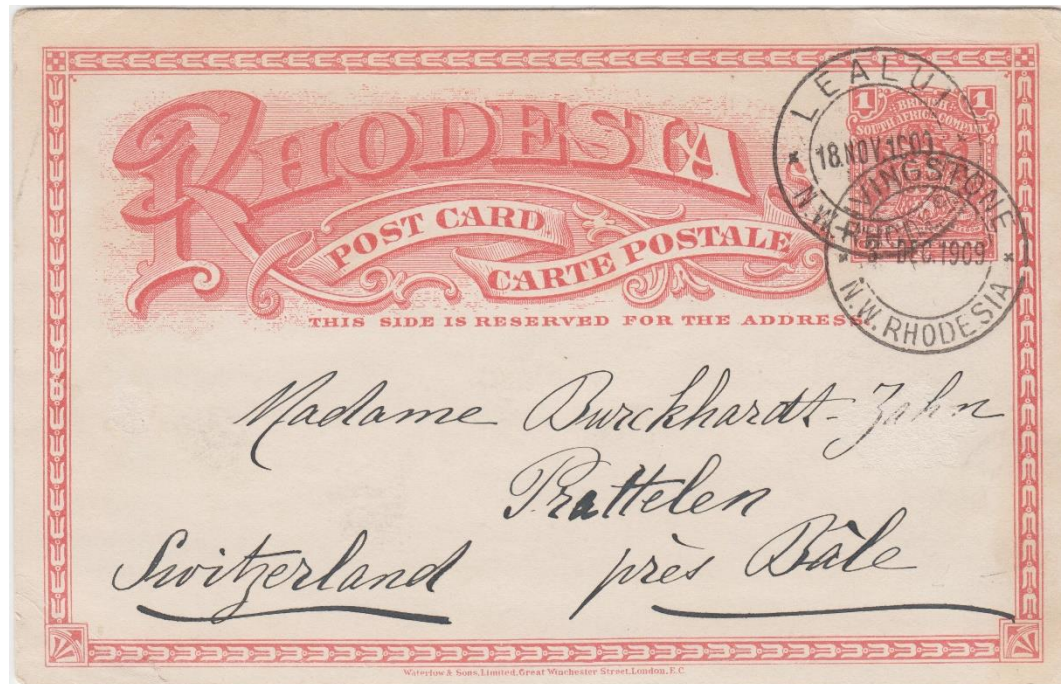 RHODESIA
POST CARD
CARTE POSTALE
THIS SIDE IS RESERVED FOR THE ADDRESS.
1 1
BRITISH
SOUTH AFRICA COMPANY
LEALUI
18.NOV.1909
N.W.RHODESIA
LIVINGSTONE
DEC.1909
N.W.RHODESIA
Madame Burckhardt-Zahn
Prattelen
Switzerland près Bâle
Waterlow & Sons, Limited, Great Winchester Street, London, E.C.